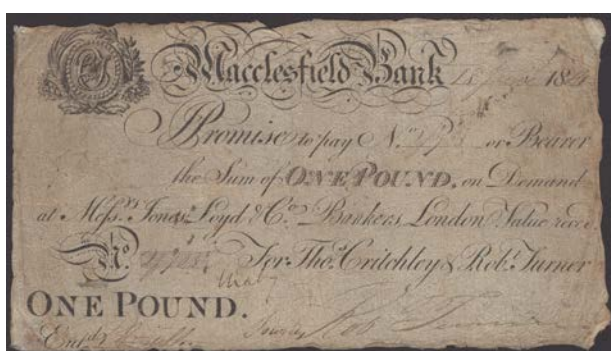 Macclesfield Bank
18
I Promise to pay N.º or Bearer
the Sum of ONE POUND, on Demand
at Mess.rs Jones Loyd & C.º Bankers London Value rece
N.º For Tho.s Critchley & Rob.t Turner
ONE POUND.
Ent.d